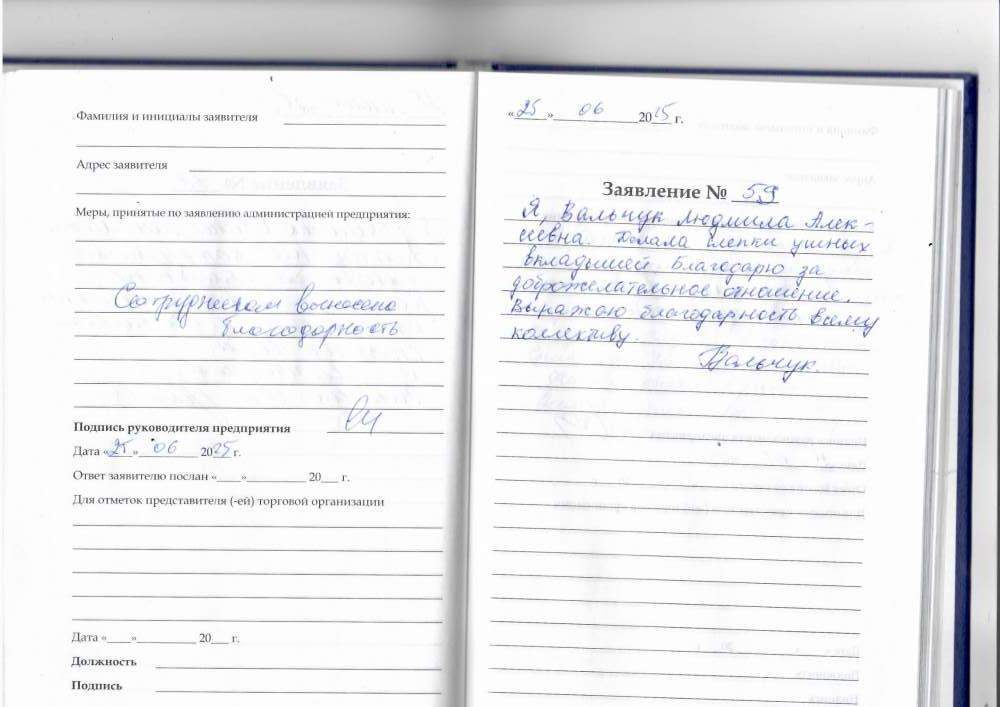 Фамилия и инициалы заявителя
Адрес заявителя
Меры, принятые по заявлению администрацией предприятия:
Сотрудникам вынесена
благодарность
Подпись руководителя предприятия
Дата «25» 06 2025 г.
Ответ заявителю послан «____»__________ 20___ г.
Для отметок представителя (-ей) торговой организации
Дата «____»__________ 20___ г.
Должность
Подпись
«25» 06 2015 г.
Заявление № 59
Я, Вальчук Людмила Алек-
сеевна. Делала слепки ушных
вкладышей. Благодарю за
доброжелательное отношение.
Выражаю благодарность всему
коллективу.
Вальчук.